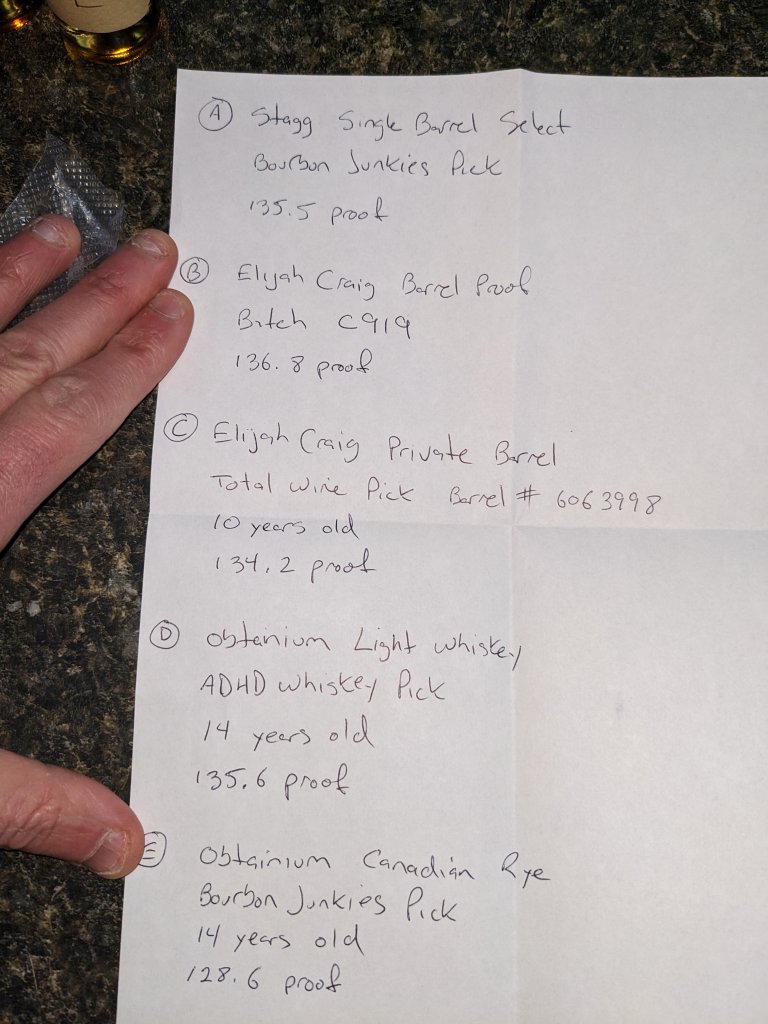 A Stagg Single Barrel Select
Bourbon Junkies Pick
135.5 proof
B Elijah Craig Barrel Proof
Batch C919
136.8 proof
C Elijah Craig Private Barrel
Total Wine Pick Barrel # 6063998
10 years old
134.2 proof
D Obtainium Light Whiskey
ADHD Whiskey Pick
14 years old
135.6 proof
E Obtainium Canadian Rye
Bourbon Junkies Pick
14 years old
128.6 proof